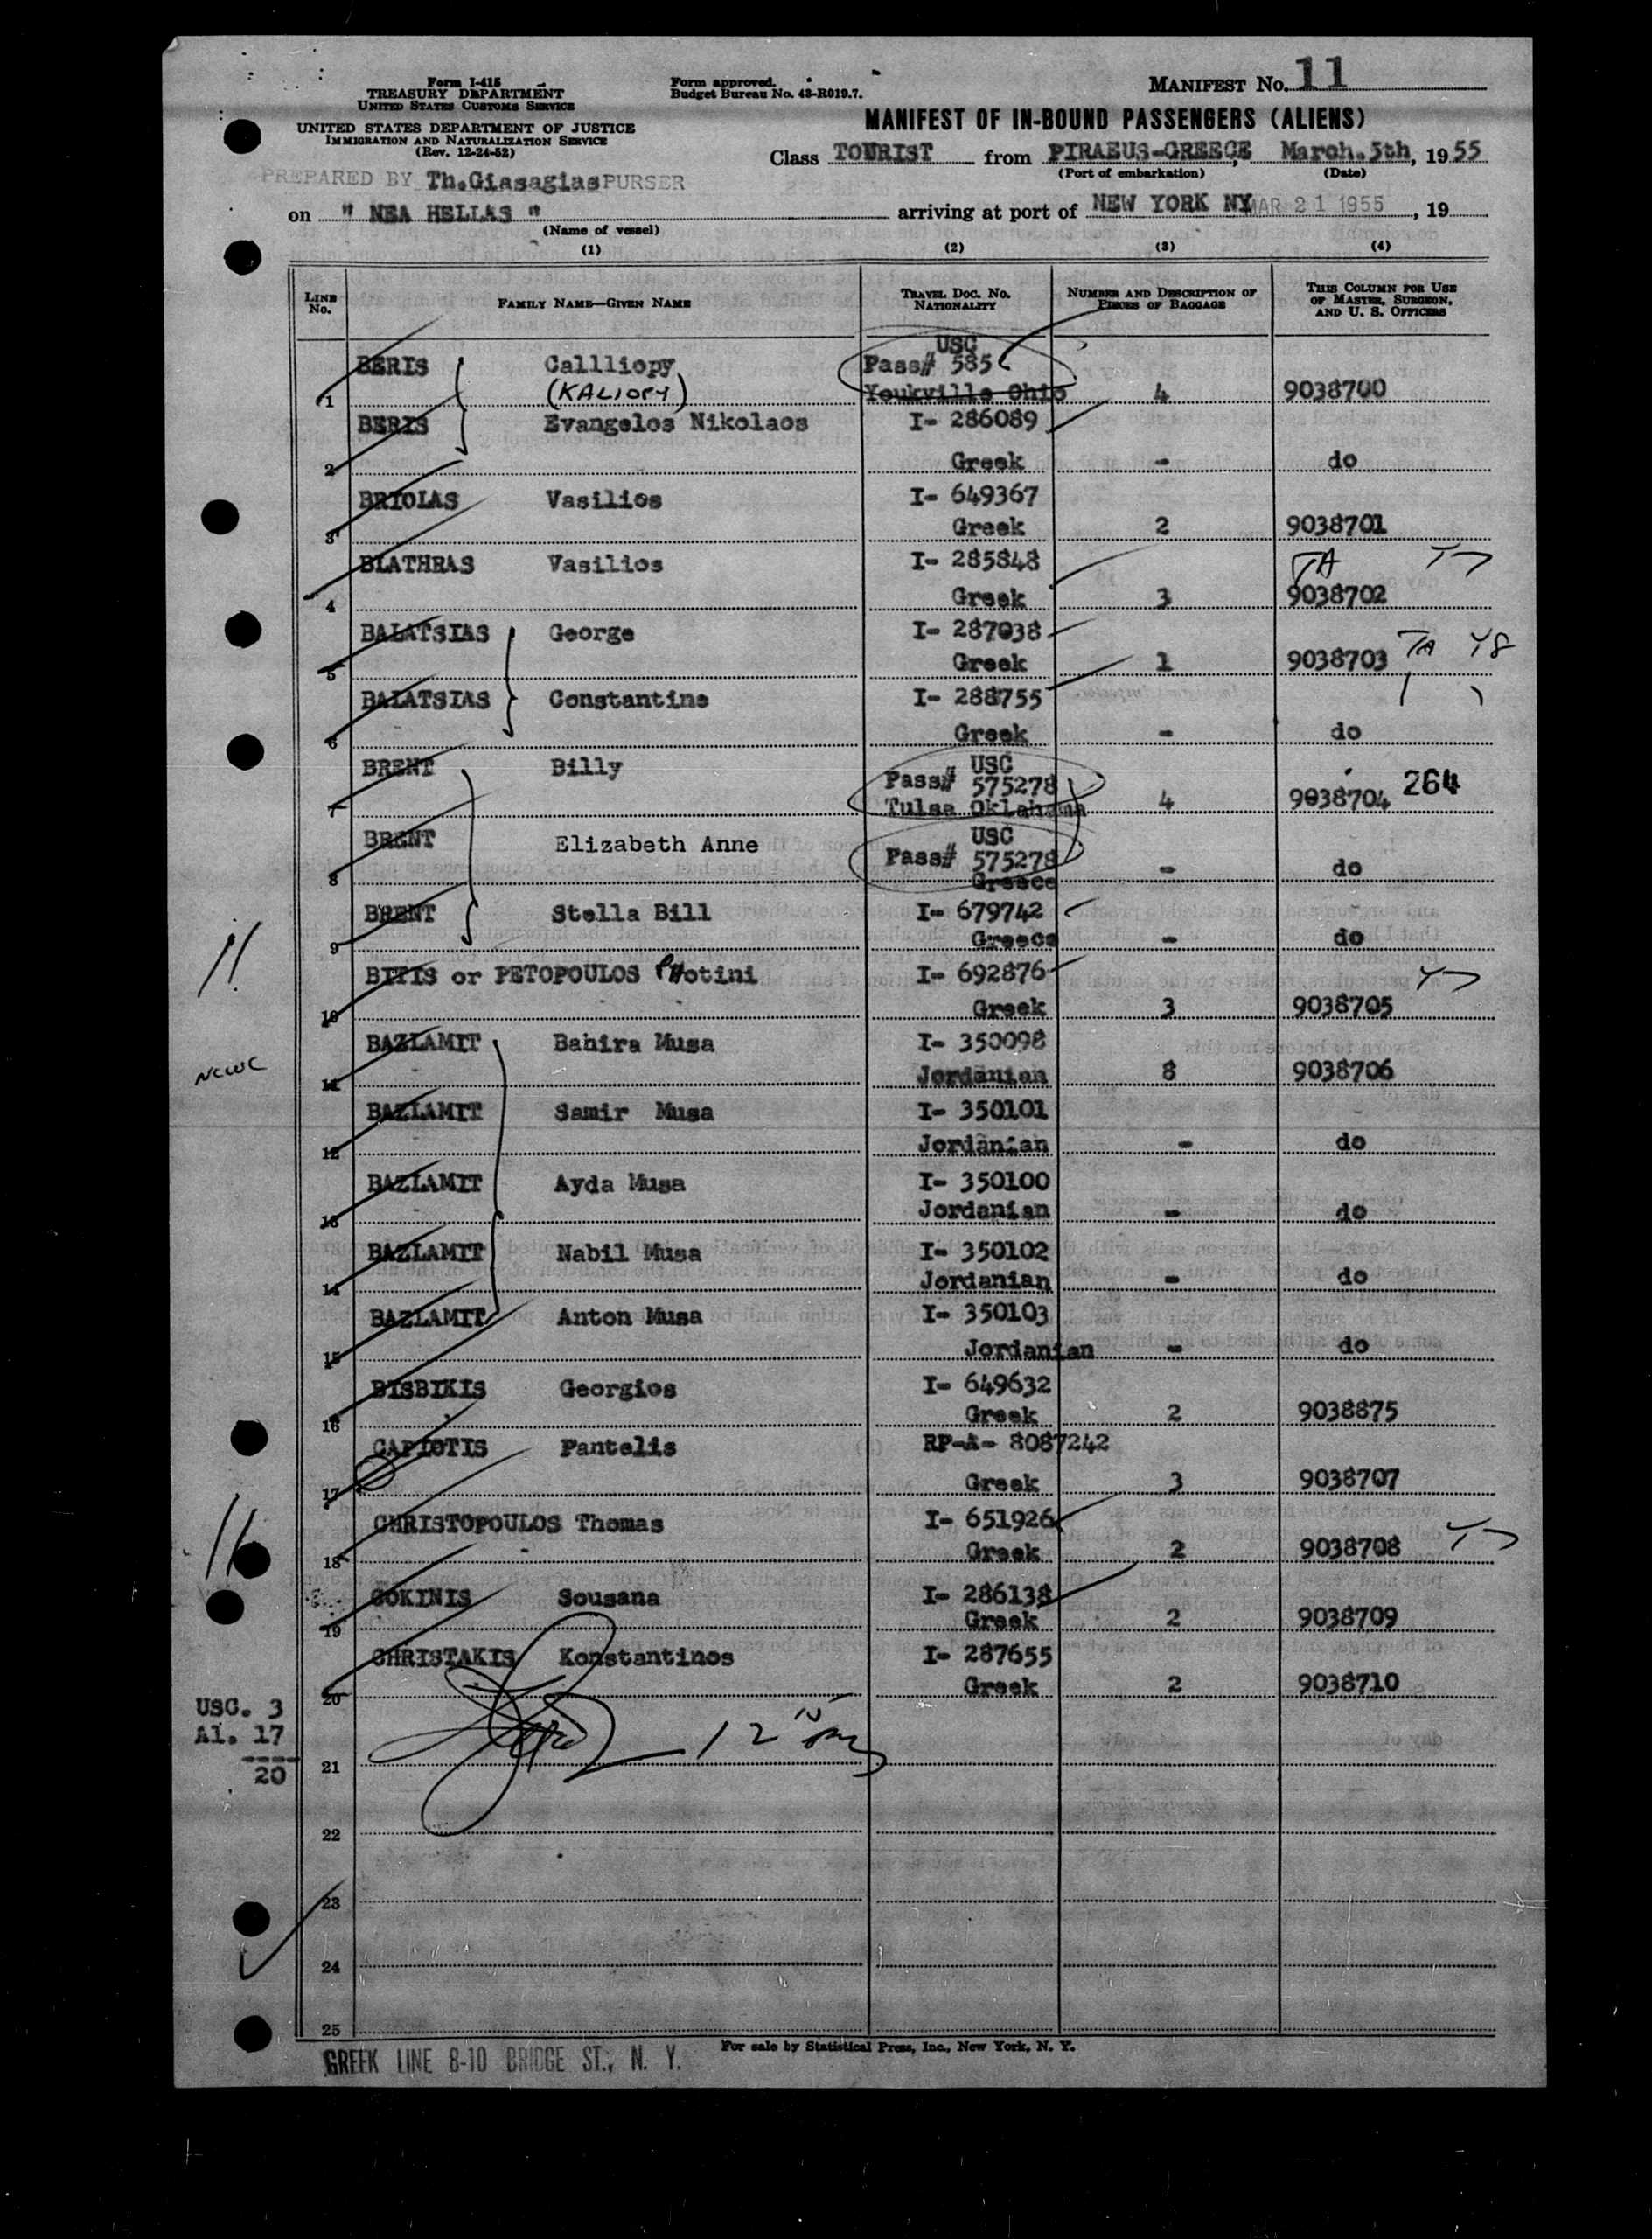 Form I-415
TREASURY DEPARTMENT
UNITED STATES CUSTOMS SERVICE
UNITED STATES DEPARTMENT OF JUSTICE
IMMIGRATION AND NATURALIZATION SERVICE
(Rev. 12-24-52)
Form approved.
Budget Bureau No. 43-R019.7.
MANIFEST No. 11
MANIFEST OF IN-BOUND PASSENGERS (ALIENS)
Class TOURIST from PIRAEUS-GREECE, March.5th, 1955
(Port of embarkation) (Date)
PREPARED BY Th.Giasagias PURSER
on " NEA HELLAS " arriving at port of NEW YORK NY MAR 21 1955, 19
(Name of vessel)
(1) (2) (3) (4)
LINE No. FAMILY NAME—GIVEN NAME TRAVEL DOC. No. NATIONALITY NUMBER AND DESCRIPTION OF PIECES OF BAGGAGE THIS COLUMN FOR USE OF MASTER, SURGEON, AND U. S. OFFICERS
USC
BERIS Callliopy Pass# 585
1 (KALIOPY) Youkville Ohio 4 9038700
BERIS Evangelos Nikolaos I- 286089
2 Greek - do
BRIOLAS Vasilios I- 649367
3 Greek 2 9038701
BLATHRAS Vasilios I- 285848 TA Y7
4 Greek 3 9038702
BALATSIAS George I- 287038
5 Greek 1 9038703 TA Y8
BALATSIAS Constantine I- 288755
6 Greek - do
BRENT Billy USC
Pass# 575278 264
7 Tulsa Oklahama 4 9038704
BRENT Elizabeth Anne USC
Pass# 575278
8 Greece - do
BRENT Stella Bill I- 679742
9 Greece - do
11
BITIS or PETOPOULOS PHotini I- 692876 Y7
10 Greek 3 9038705
BAZLAMIT Bahira Musa I- 350098
NCWC
11 Jordanian 8 9038706
BAZLAMIT Samir Musa I- 350101
12 Jordanian - do
BAZLAMIT Ayda Musa I- 350100
13 Jordanian - do
BAZLAMIT Nabil Musa I- 350102
14 Jordanian - do
BAZLAMIT Anton Musa I- 350103
15 Jordanian - do
BISBIKIS Georgios I- 649632
16 Greek 2 9038875
CAPIOTIS Pantelis RP-A- 8087242
17 Greek 3 9038707
CHRISTOPOULOS Thomas I- 651926
18 Greek 2 9038708 Y7
GOKINIS Sousana I- 286138
19 Greek 2 9038709
CHRISTAKIS Konstantinos I- 287655
20 Greek 2 9038710
USC. 3
Al. 17
20
21
22
23
24
25
GREEK LINE 8-10 BRIDGE ST., N. Y.
For sale by Statistical Press, Inc., New York, N. Y.